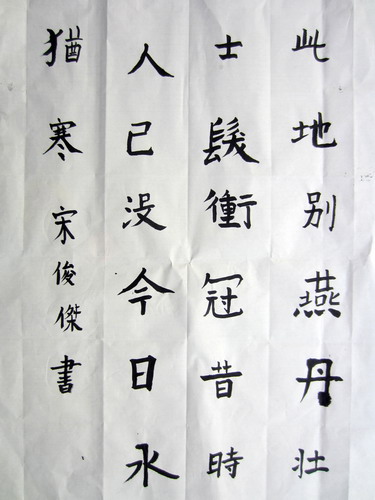 此地别燕丹壮
士髮衝冠昔時
人已没今日水
猶寒宋俊傑書